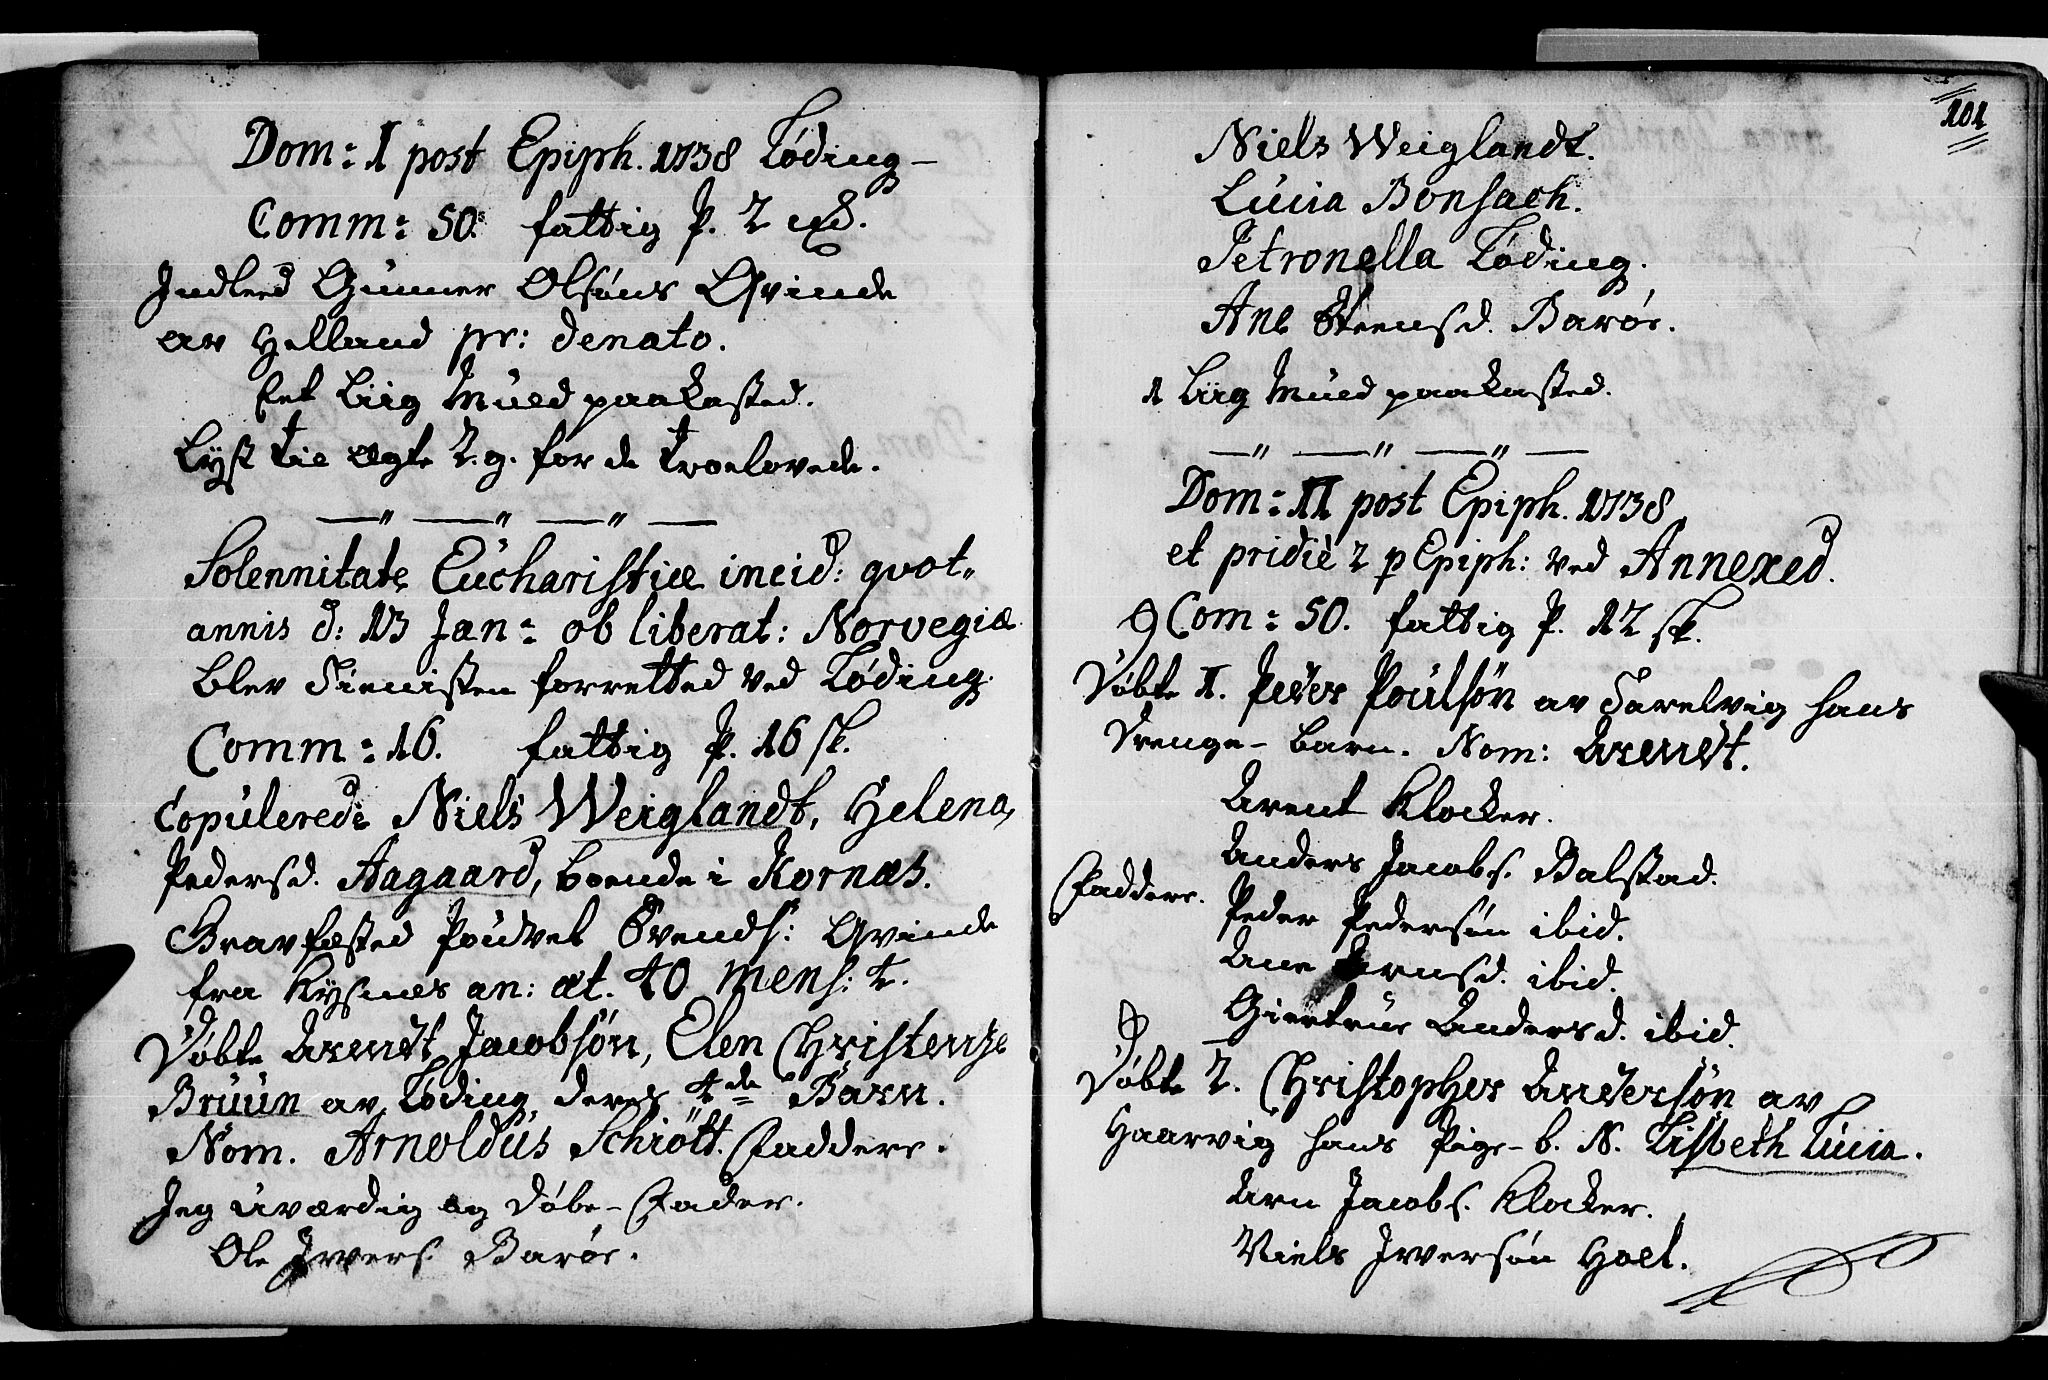 Dom: 1 post Epiph. 1738 Løding
Comm: 50. fattig P. 2
Indleed Gunner Olsøns Qvinde
av Helland pr: denato.
Eet Liig Muld paakasted.
Lyst til Ægte 2. g. for de Troelovede.
Solennitate Eucharisticæ incid: qvot-
annis d: 13 Jan: ob liberat: Norvegiæ
blev Tienisten forretted ved Løding.
Comm: 16. fattig P. 16 sk.
Copulered: Niels Weiglandt, Helena
Pedersd. Aagaard, boende i Kornæs.
Gravfæsted Poudvel Svends: Qvinde
fra Kysnæs an: æt. 40 mens: 4.
Døbte Arendt Jacobsøn, Elen Christentze
Bruun av Løding deres 4de Barn.
Nom. Arnoldus Schiøtt. Faddere.
Jeg uværdig og Døbe-Fader.
Ole Ivers. Barøe.
101
Niels Weiglandt.
Lucia Bonsach.
Petronella Løding.
Ane Steensd. Barøe.
1 Liig Muld paakasted.
Dom: II post Epiph. 1738
et pridiè 2 p Epiph: ved Annexed.
Com: 50. fattig P. 12 sk.
Døbte 1. Peder Poulsøn av Tarelvig hans
Drenge-barn. Nom: Arendt.
Arent Klocker.
Anders Jacobs. Balstad.
Faddere. Peder Pedersøn ibid.
Ane Arnsd. ibid.
Giertrue Andersd. ibid.
Døbte 2. Christopher Andersøn av
Haarvig hans Pige-b. N. Lisbeth Lucia.
Arn Jacobs. Klocker.
Niels Iversøn Hoel.